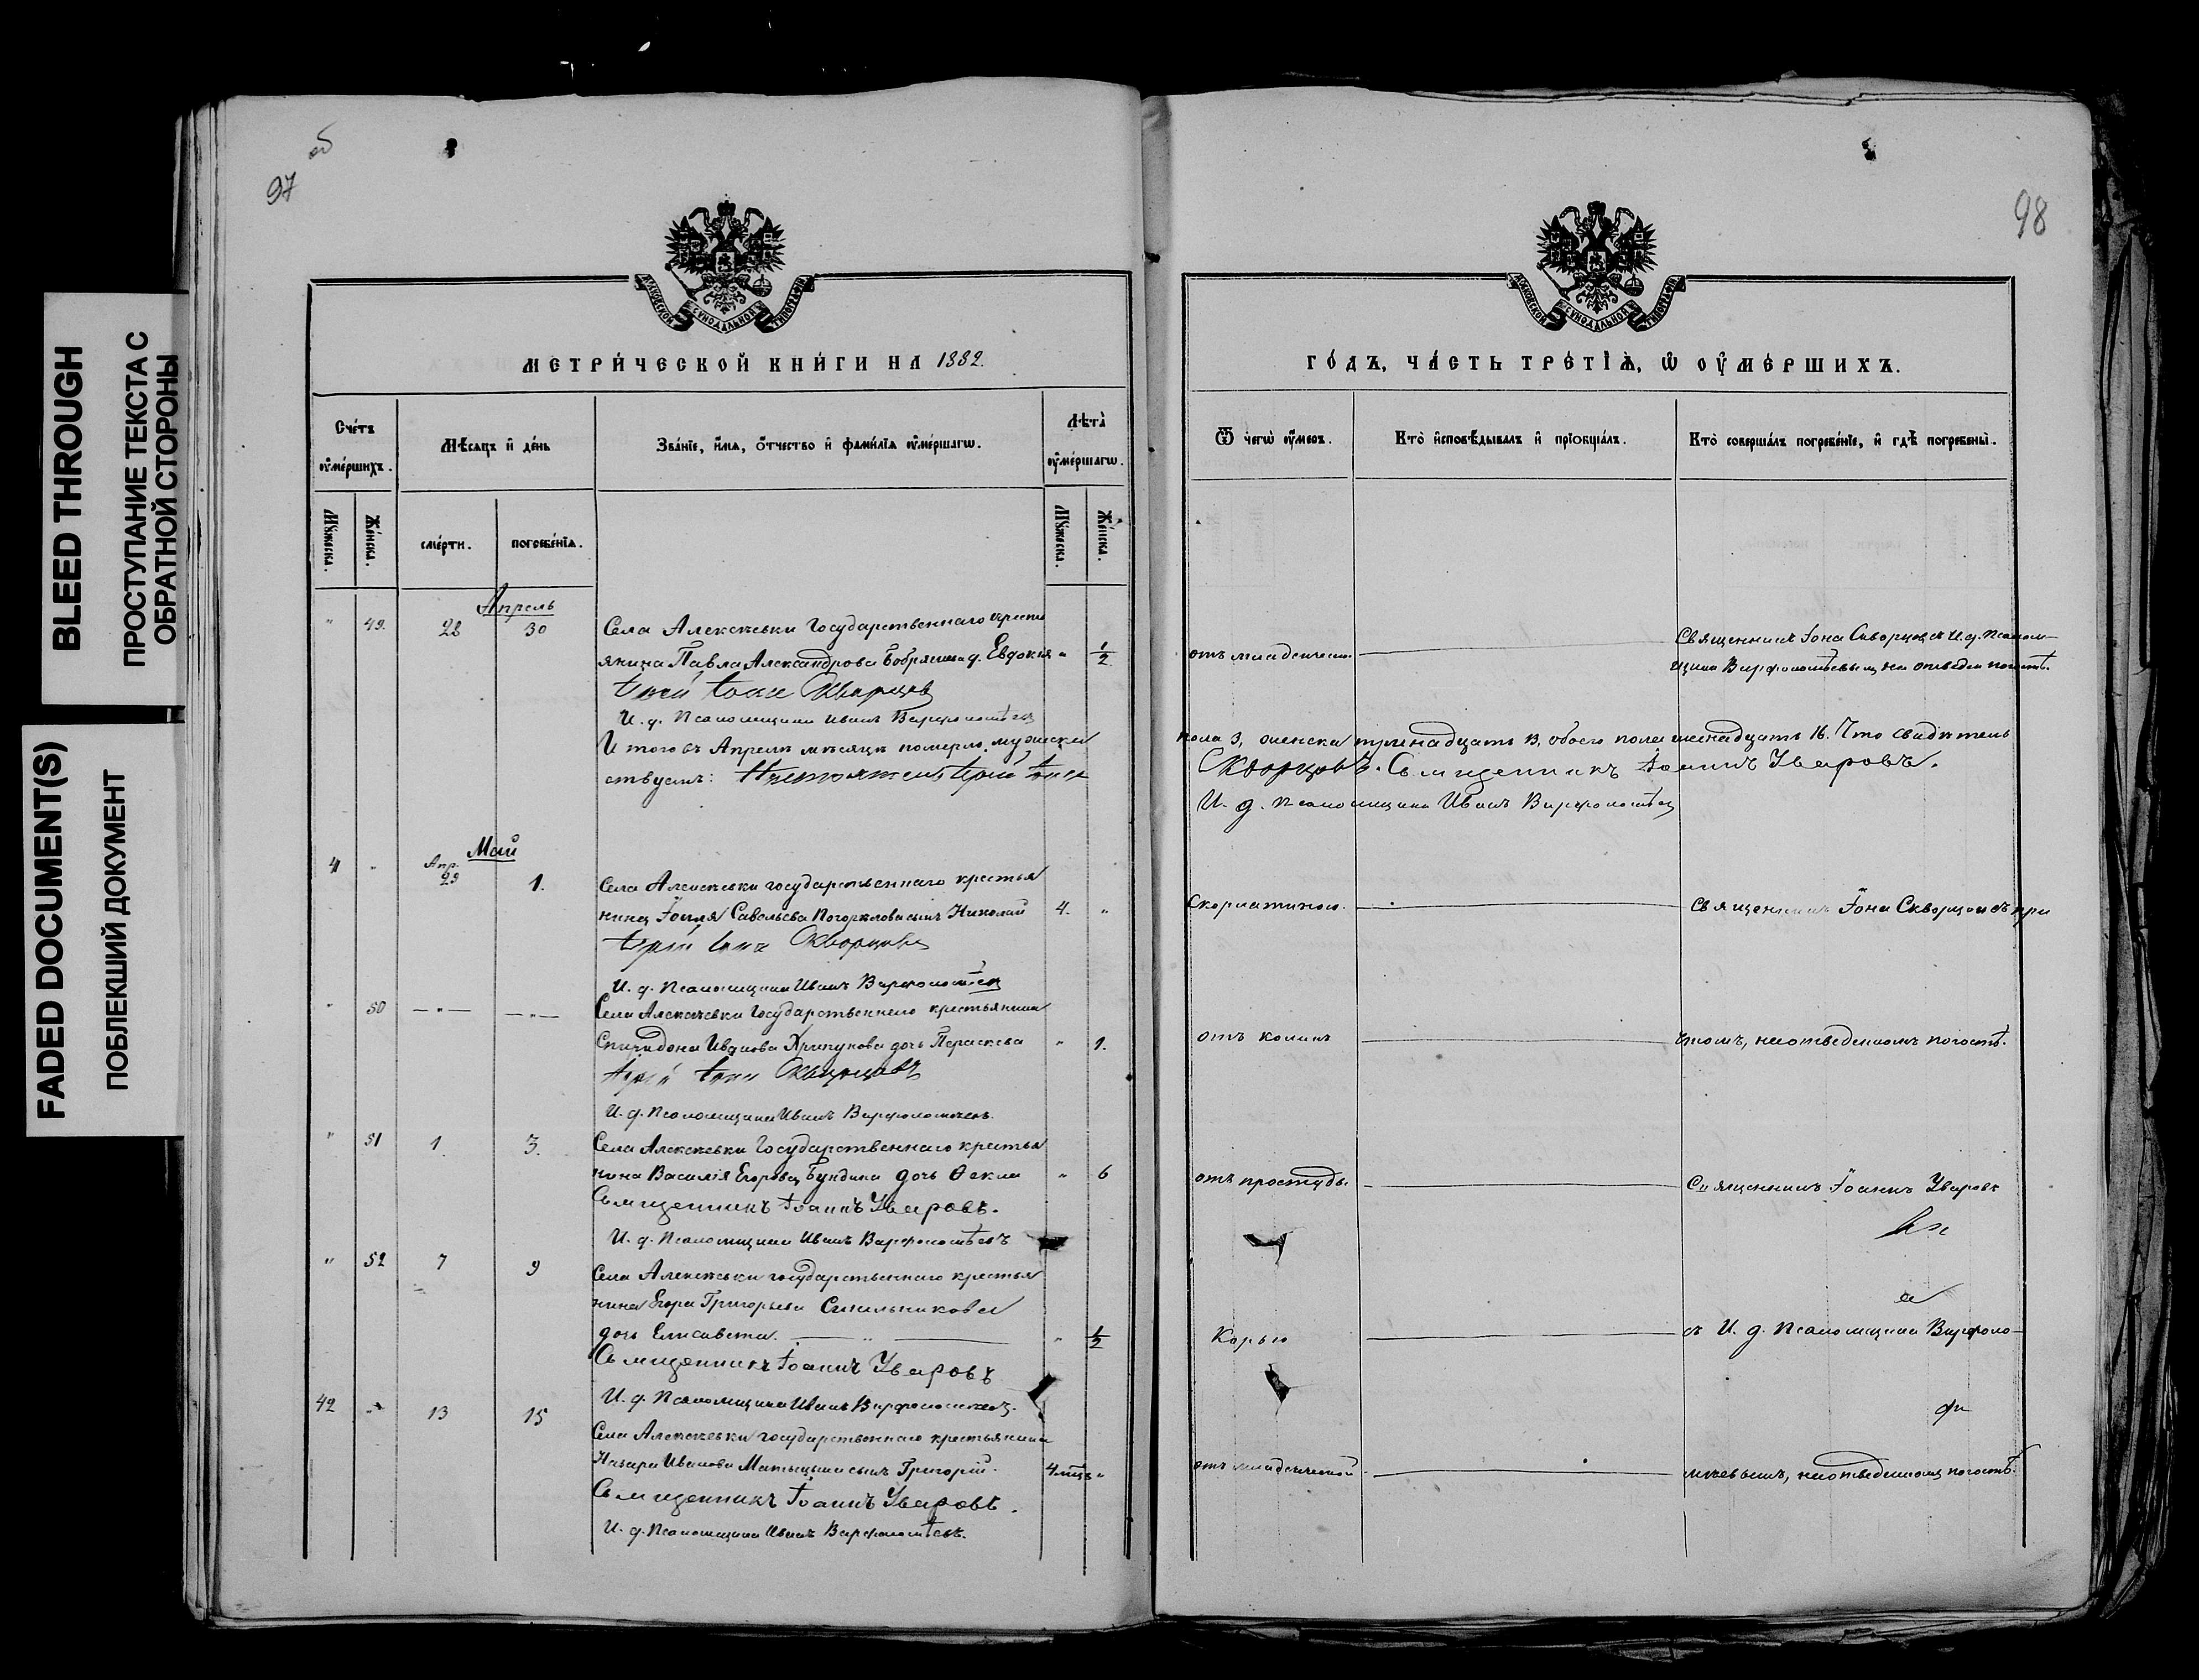 BLEED THROUGH
ПРОСТУПАНИЕ ТЕКСТА С
ОБРАТНОЙ СТОРОНЫ
FADED DOCUMENT(S)
ПОБЛЕКШИЙ ДОКУМЕНТ
97
МОСКОВСКОЙ СѴНОДАЛЬНОЙ ТИПОГРАФІИ
МЕТРИ́ЧЕСКОЙ КНИ́ГИ НА 1882.
Сче́тъ ᲂу҆ме́ршихъ.
Мѣсяцъ и҆ де́нь
Зва́нїе, и҆́мѧ, ѻ҆́тчество и҆ фами́лїѧ ᲂу҆ме́ршагѡ.
Лѣта̀ ᲂу҆ме́ршагѡ.
Мꙋ́жеска.
Же́нска.
сме́рти.
погребе́нїѧ.
Мꙋ́жеска.
Же́нска.
Апрель
" 49. 28 30 Села Алексѣевки Государственнаго кресть
янина Павла Александрова д. Евдокія " 1/2
Іерей Іона Скворцовъ
И. д. Псаломщика Иванъ Варфоломѣевъ
Итого въ Апрелѣ мѣсяцѣ померло мужеска
ствуемъ: Іерей Іона
Май
4 " Апр. 29 1. Села Алексѣевки государственнаго крестья
нина Савельева сынъ Николай 4. "
Іерей Іона Скворцовъ
И. д. Псаломщика Иванъ Варфоломѣевъ
" 50 —"— —"— Села Алексѣевки Государственнаго крестьянина
Спиридона Иванова Хрипунова дочь Параскева " 1.
Іерей Іона Скворцовъ
И. д. Псаломщика Иванъ Варфоломѣевъ.
" 51 1 3. Села Алексѣевки Государственнаго крестья
нина Василія Егорова Бундина дочь Ѳекла " 6
Священникъ Іоаннъ Уваровъ.
И. д. Псаломщика Иванъ Варфоломѣевъ
" 52 7 9 Села Алексѣевки государственнаго крестья
нина Егора Григорьева Синельникова
дочь Елисавета. " 1/2
Священникъ Іоаннъ Уваровъ
И. д. Псаломщика Иванъ Варфоломѣевъ.
42 " 13 15 Села Алексѣевки государственнаго крестьянина
Назара Иванова сынъ Григорій. 4 мцъ "
Священникъ Іоаннъ Уваровъ.
И. д. Псаломщика Иванъ Варфоломѣевъ.
98
МОСКОВСКОЙ СѴНОДАЛЬНОЙ ТИПОГРАФІИ
ГО́ДЪ, ЧА́СТЬ ТРЕ́ТЇѦ, Ѡ҆ ОУ҆МЕ́РШИХЪ.
Ѿ чегѡ̀ ᲂу҆́меръ.
Кто̀ и҆сповѣ́дывалъ и҆ прїѡбща́лъ.
Кто̀ соверша́лъ погребе́нїе, и҆ гдѣ̀ погребены̀.
Священникъ Іона Скворцовъ съ И. д. Псалом-
отъ младенческой щика Варфоломѣевымъ на отведен погостѣ.
пола 3, женска тринадцать 13, обоего пола шестнадцать 16. Что свидѣтель
Скворцовъ. Священникъ Іоаннъ Уваровъ.
И. д. Псаломщика Иванъ Варфоломѣевъ
Скорлатиною. Священникъ Іона Скворцовъ при
отъ колики отведенномъ погостѣ.
отъ простуды Священникъ Іоаннъ Уваровъ
Корью съ И. д. Псаломщика Варфоло-
отъ младенческой мѣевымъ, на отведенномъ погостѣ.